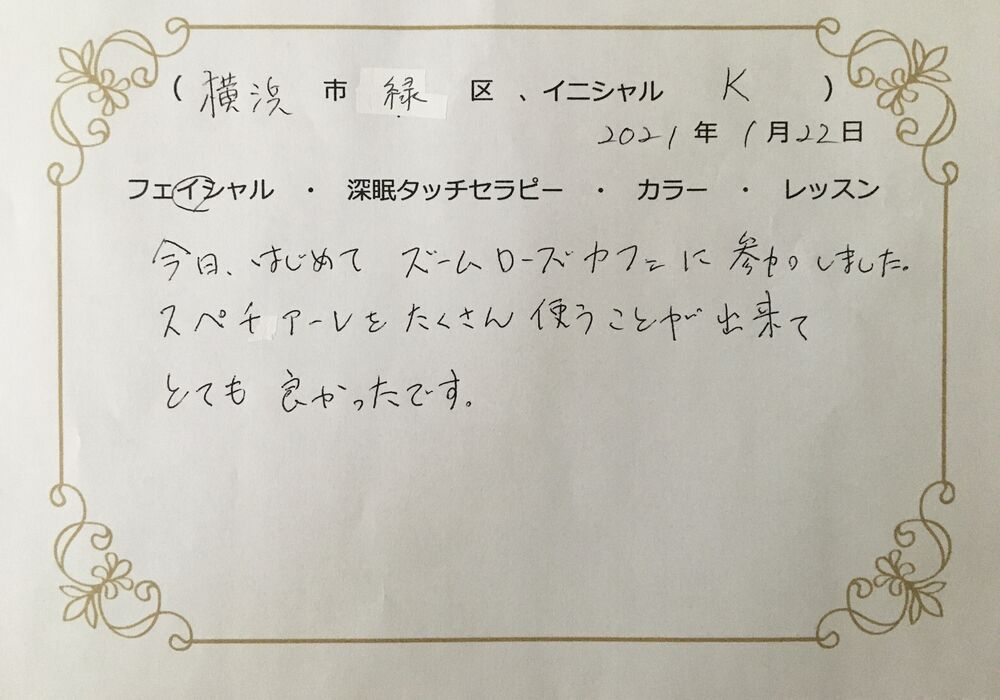 （横浜市緑区、イニシャル K ）
2021年1月22日
フェイシャル ・ 深眠タッチセラピー ・ カラー ・ レッスン
今日、はじめて ズームローズカフェに 参加しました。
スペチアーレを たくさん 使うことが 出来て
とても 良かったです。